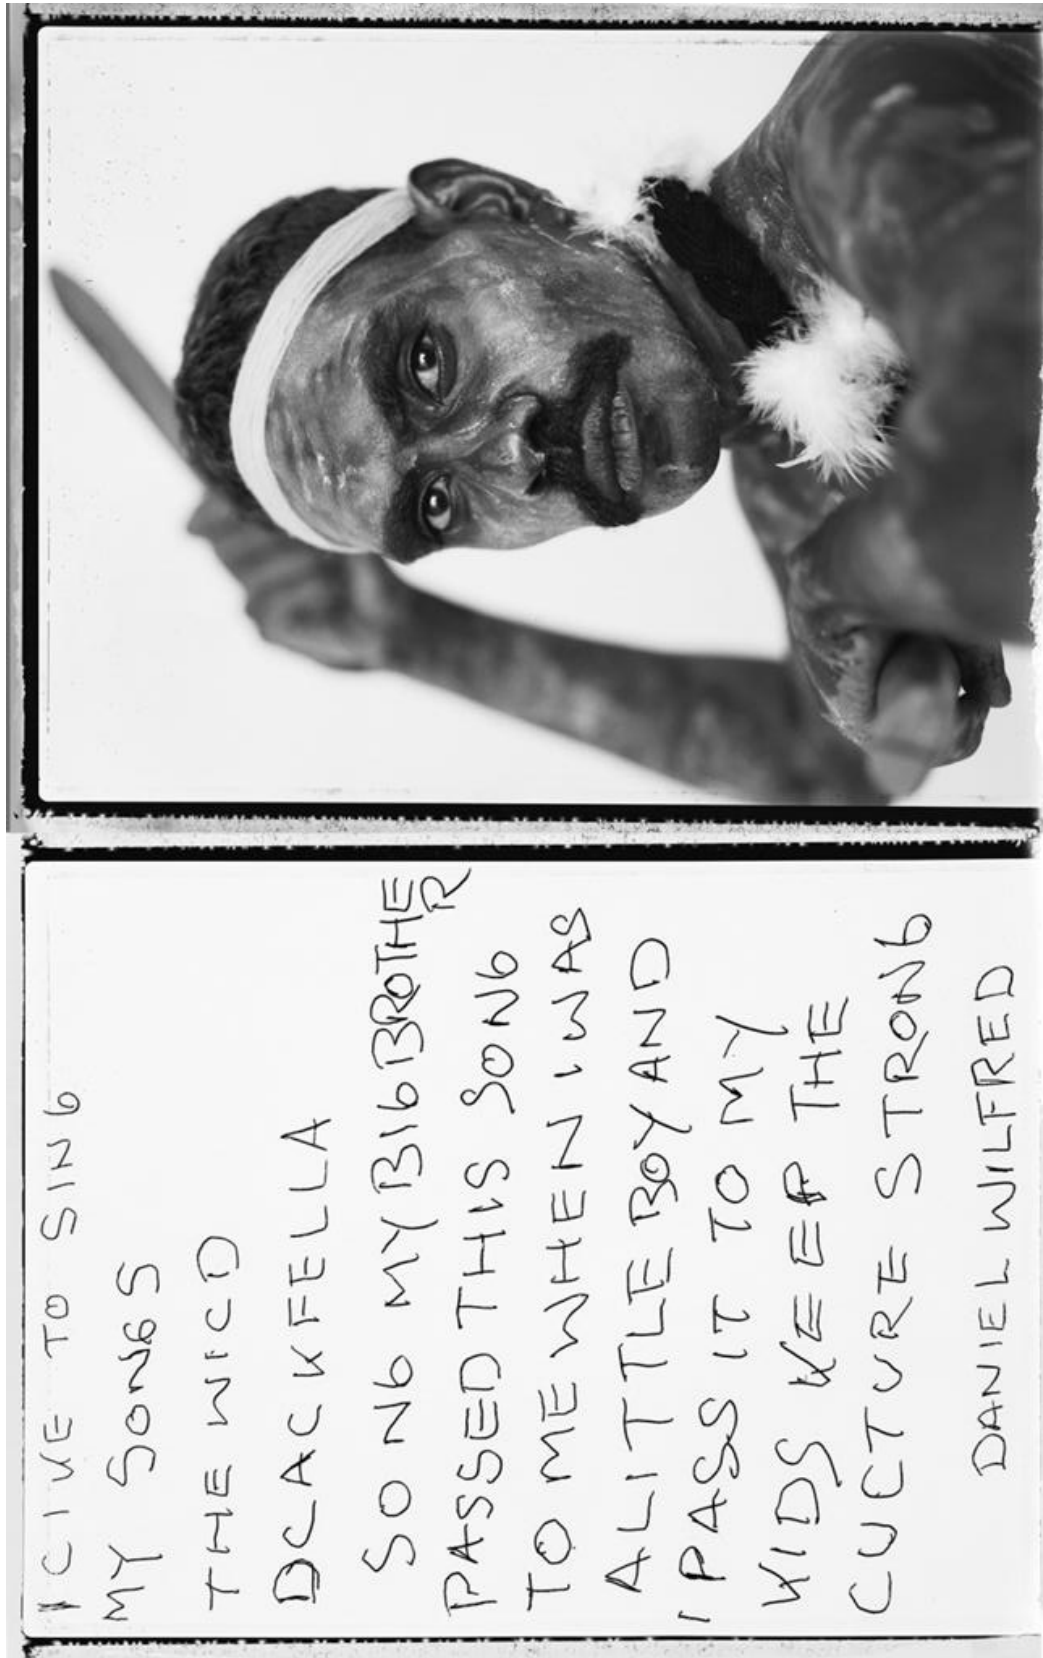 I CIVE TO SING
MY SONGS
THE WICD
BCACKFELLA
SONG MY BIG BROTHER
PASSED THIS SONG
TO ME WHEN I WAS
A LITTLE BOY AND
I PASS IT TO MY
KIDS KEEP THE
CUCTURE STRONG
DANIEL WILFRED